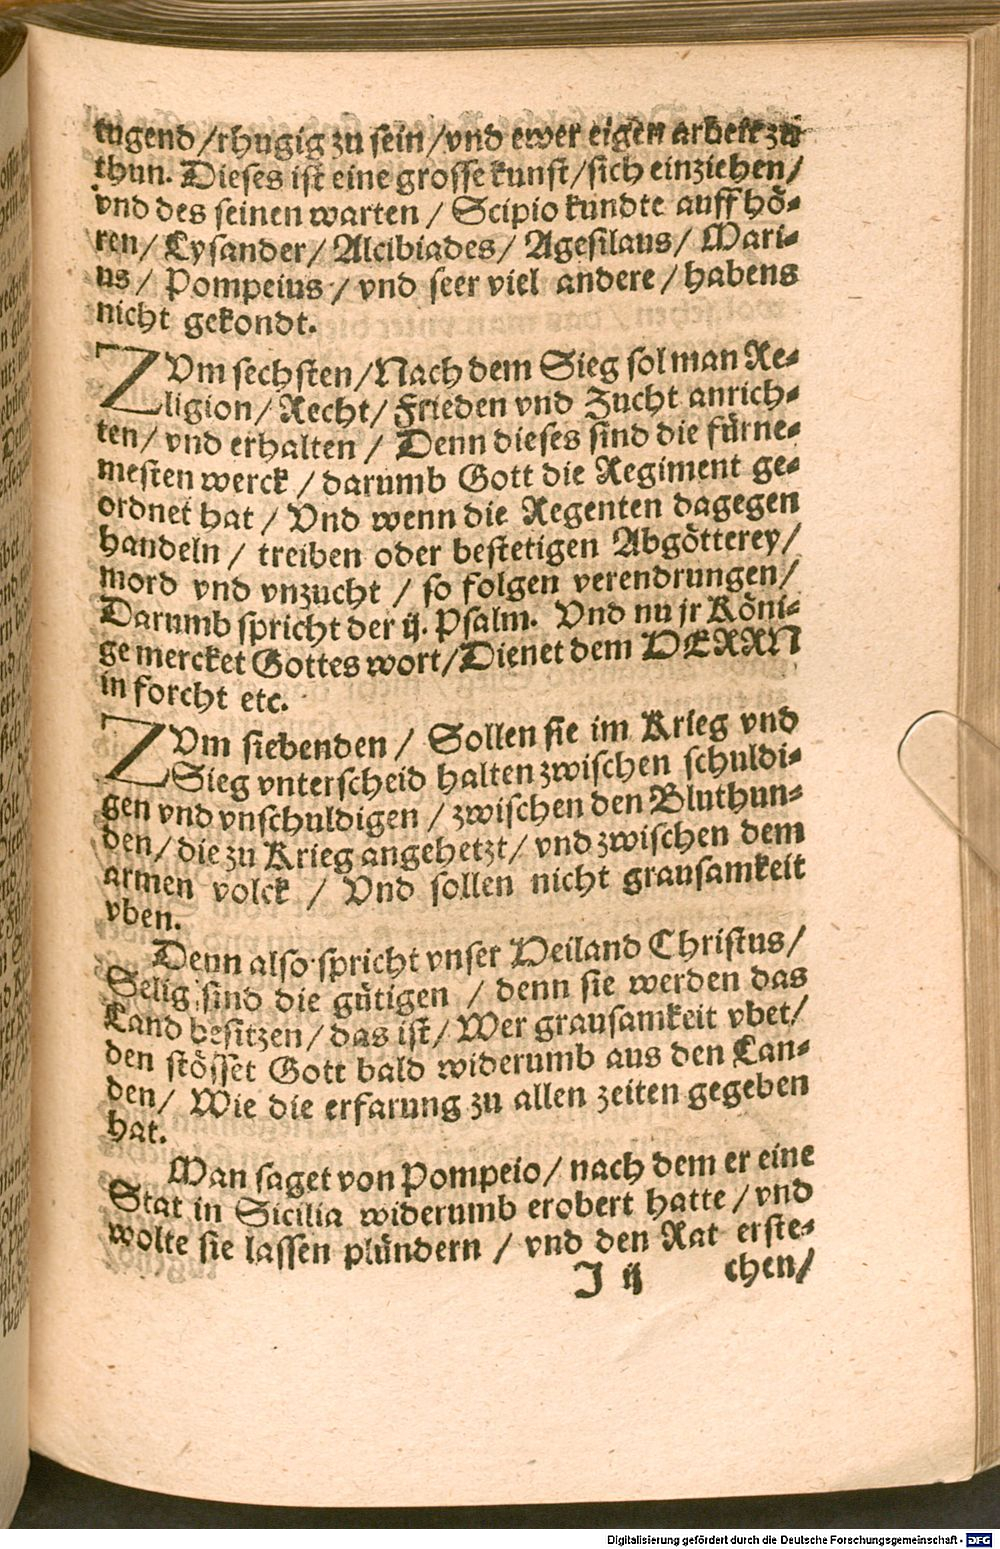 tugend /rhugig zu sein /vnd ewer eigen arbeit zu
thun. Dieses ist eine grosse kunst/sich einziehen/
vnd des seinen warten / Scipio kundte auffhö⸗
ren/ Lysander/ Alcibiades/ Agesilaus/ Mari⸗
us/ Pompeius / vnd seer viel andere / habens
nicht gekondt.
ZVm sechsten/Nach dem Sieg sol man Re⸗
ligion/ Recht/ Frieden vnd Zucht anrich⸗
ten/ vnd erhalten / Denn dieses sind die fürne⸗
mesten werck / darumb Gott die Regiment ge⸗
ordnet hat / Vnd wenn die Regenten dagegen
handeln / treiben oder bestetigen Abgötterey/
mord vnd vnzucht / so folgen verendrungen/
Darumb spricht der ij. Psalm. Vnd nu jr Köni⸗
ge mercket Gottes wort/Dienet dem HERRN
in forcht etc.
ZVm siebenden / Sollen sie im Krieg vnd
Sieg vnterscheid halten zwischen schuldi⸗
gen vnd vnschuldigen / zwischen den Bluthun⸗
den/ die zu Krieg angehetzt/ vnd zwischen dem
armen volck / Vnd sollen nicht grausamkeit
vben.
Denn also spricht vnser Heiland Christus/
Selig sind die gütigen / denn sie werden das
Land besitzen/ das ist/ Wer grausamkeit vbet/
den stösset Gott bald widerumb aus den Lan⸗
den/ Wie die erfarung zu allen zeiten gegeben
hat.
Man saget von Pompeio/ nach dem er eine
Stat in Sicilia widerumb erobert hatte / vnd
wolte sie lassen plündern / vnd den Rat erste⸗
J ij chen/
Digitalisierung gefördert durch die Deutsche Forschungsgemeinschaft - DFG